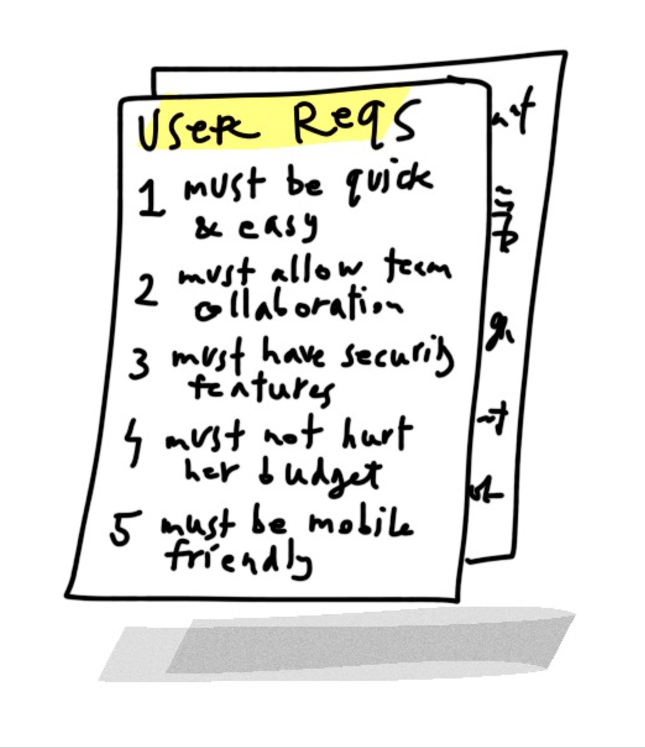 User Reqs
1 must be quick
& easy
2 must allow team
collaboration
3 must have security
features
4 must not hurt
her budget
5 must be mobile
friendly